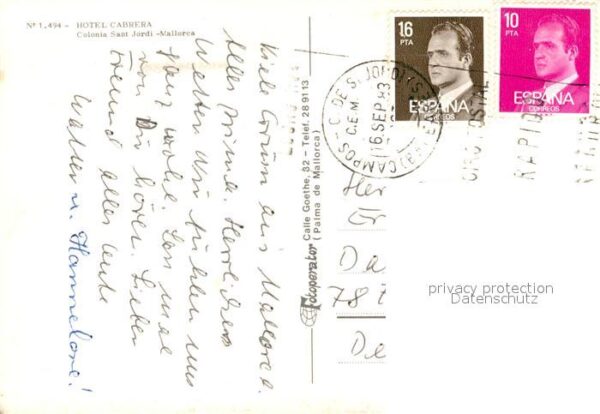 Nº 1.494 - HOTEL CABRERA
Colonia Sant Jordi -Mallorca
Viele Grüße aus Mallorca.
Alles prima. Herrliches
Wetter. Wir fühlen uns
ganz wohl. Lass mal
von Dir hören. Lieber
Freund alles Gute
Walter u. Hannelore!
Fotoperator
Calle Goethe, 32 - Teléf. 28 91 13
(Palma de Mallorca)
16
PTA
ESPAÑA
CORREOS
10
PTA
ESPAÑA
CORREOS
CAMPOS - C. DE S. JORDI
C.E.M.
16 SEP 83
Her
D
78
privacy protection
Datenschutz